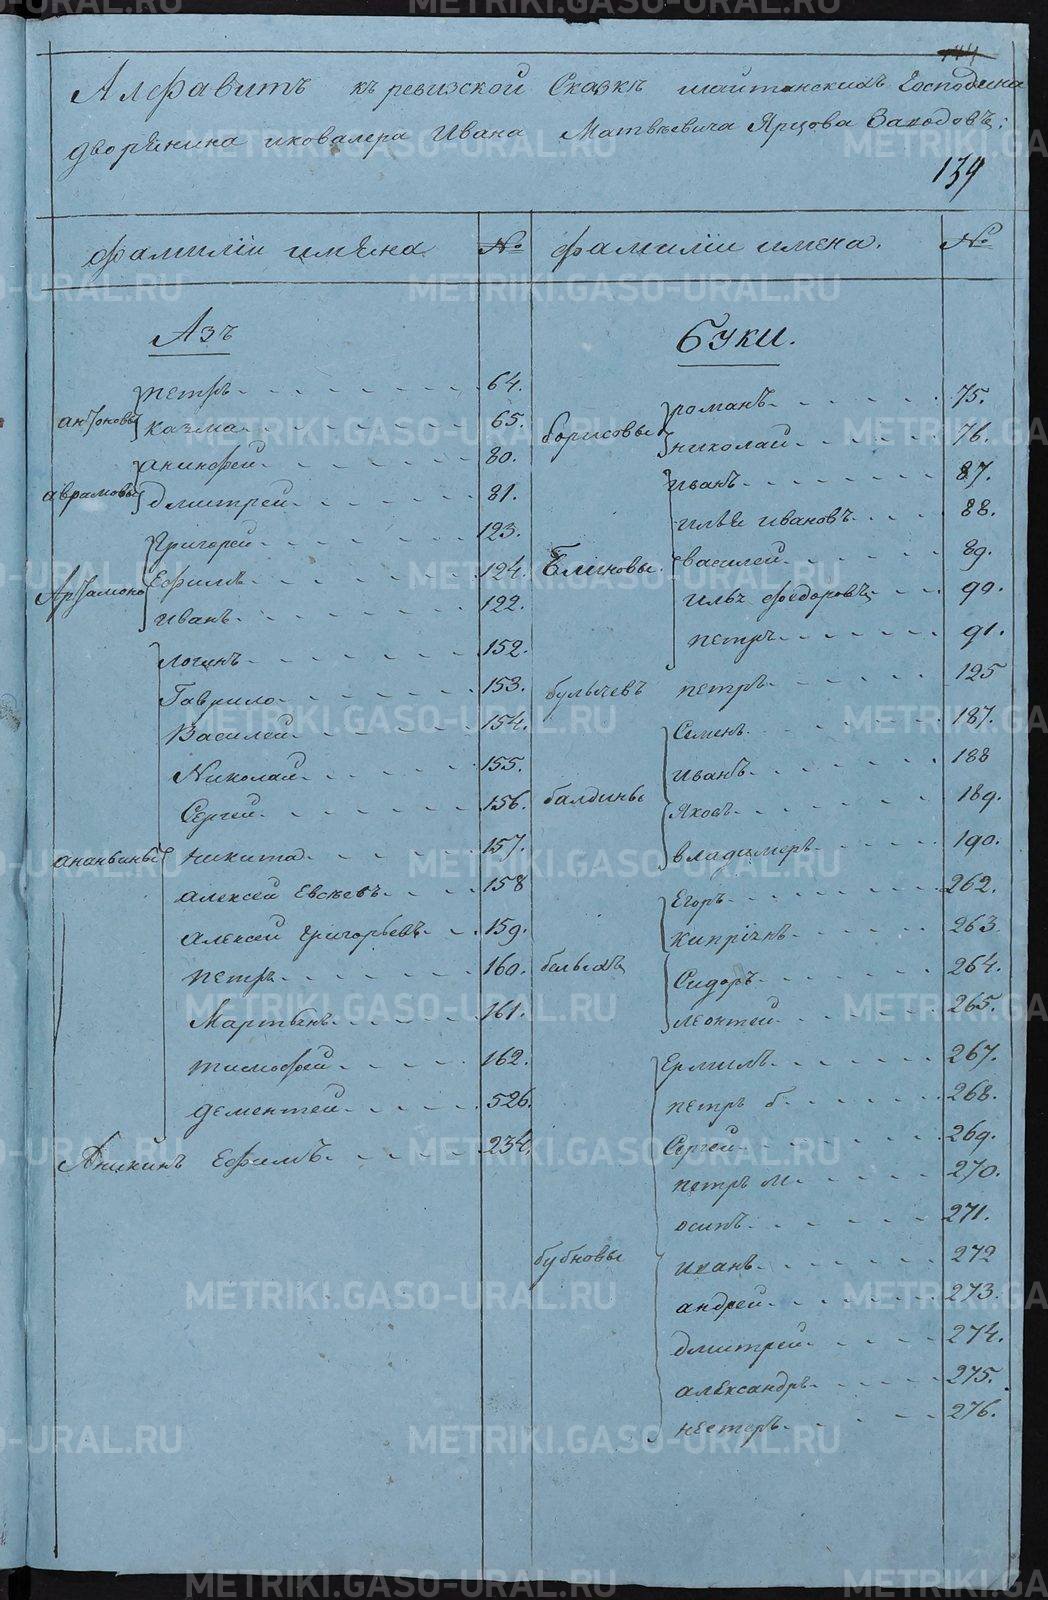 144
Алфавитъ къ ревизской Сказкѣ шайтанскихъ Господина
дворянина и ковалера Ивана Матвѣевича Ярцова Заводовъ:
139
фамиліи имѣна № фамиліи имена. №
Азъ
антоновы
петръ 64.
казма 65.
аврамовы
анинофей 80.
дмитрей 81.
Артамоно
Григорей 123.
Ефимъ 124.
иванъ 122.
ананьины
логинъ 152.
Гаврило 153.
Василей 154.
Николай 155.
Сергей 156.
никита 157.
алексей Евсѣевъ 158
алексей григорьевъ 159.
петръ 160.
Мартынъ 161.
тимофей 162.
дементей 526.
Аникинъ Ефимъ 234.
Буки.
борисовы
романъ 75.
николай 76.
Блиновы.
иванъ 87.
илья ивановъ 88.
василей 89.
илья федоровъ 90.
петръ 91.
булычевъ петръ 125
балдины
Семенъ 187.
иванъ 188
Яковъ 189.
владимеръ 190.
белыхъ
Егоръ 262.
кипріянъ 263
Сидоръ 264.
леонтей 265.
бубновы
Ермилъ 267.
петръ б 268.
Сергей 269.
петръ м 270.
осипъ 271.
иванъ 272
андрей 273.
дмитрей 274.
александръ 275.
нестеръ 276.
METRIKI.GASO-URAL.RU